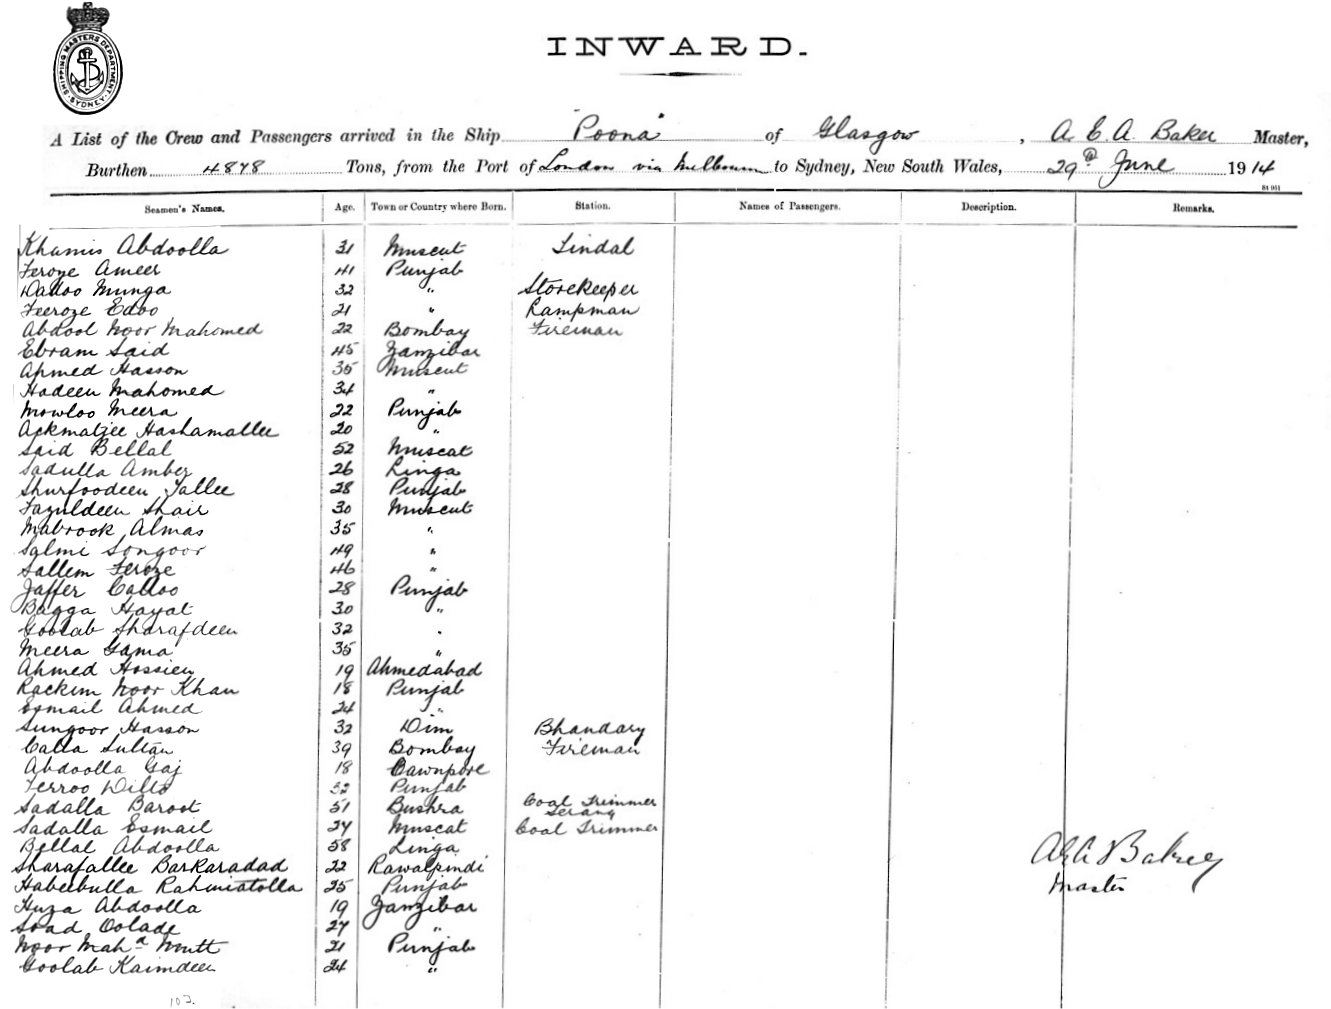 SHIPPING MASTERS DEPARTMENT. SYDNEY.
INWARD.
A List of the Crew and Passengers arrived in the Ship "Poona" of Glasgow, A. E. A. Baker Master,
Burthen 4878 Tons, from the Port of London via Melbourn to Sydney, New South Wales, 29th June 1914
St 961
Seamen's Names. Age. Town or Country where Born. Station. Names of Passengers. Description. Remarks.
Khamis Abdoolla 31 Muscut Tindal
Feroze Ameer 41 Punjab
Dadoo Munga 32 " Storekeeper
Feeroze Edoo 21 " Lampman
Abdool Noor Mahomed 22 Bombay Fireman
Ebram Said 45 Zanzibar
Ahmed Hasson 35 Muscut
Hadeen Mahomed 34 "
Mowloo Meera 22 Punjab
Ackmatjee Hashamallee 20 "
Said Bellal 52 Muscat
Sadulla Amber 26 Linga
Shurfoodeen Jallee 28 Punjab
Fazuldeen Shair 30 Muscut
Mabrook Almas 35 "
Salmi Songoor 49 "
Sallem Feroze 46 "
Jaffer Calloo 28 Punjab
Bagga Hayat 30 "
Goolab Sharafdeen 32 "
Meera Gama 35 "
Ahmed Hossien 19 Ahmedabad
Rackim Noor Khan 18 Punjab
Esmail Ahmed 24 "
Sungoor Hasson 32 Dim Bhandary
Calla Sultan 39 Bombay Fireman
Abdoolla Gaj 18 Cawnpore
Ferroo Ditto 32 Punjab
Sadalla Baroot 51 Bushra Coal Trimmer Serang
Sadalla Esmail 27 Muscat Coal Trimmer
Bellal Abdoolla 58 Linga
Sharafallee Barkaradad 22 Rawalpindi
Habeebulla Rahmatolla 25 Punjab
Huza Abdoolla 19 Zanzibar
Soad Oolade 27 "
Noor Mahd Nutt 21 Punjab
Goolab Kaimdeen 24 "
AEA Baker
Master
102.